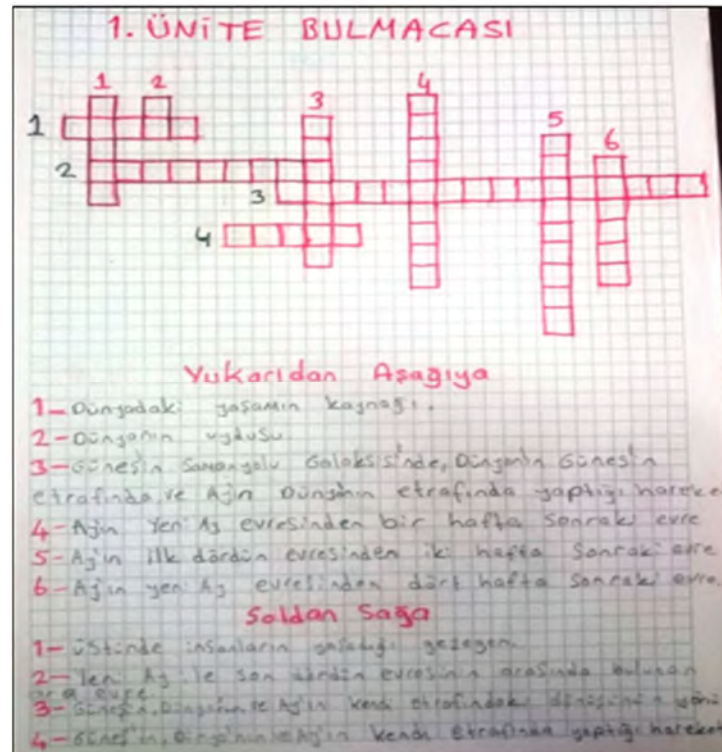 1. ÜNİTE BULMACASI
1 2 3 4 5 6
1
2
3
4
Yukarıdan Aşağıya
1- Dünyadaki yaşamın kaynağı.
2- Dünyanın uydusu.
3- Güneşin Samanyolu Galaksisinde, Dünyanın Güneşin
etrafında ve Ayın Dünyanın etrafında yaptığı hareke
4- Ayın Yeni Ay evresinden bir hafta sonraki evre
5- Ay'ın ilk dördün evresinden iki hafta sonraki evre
6- Ay'ın yeni Ay evresinden dört hafta sonraki evre
Soldan Sağa
1- üstünde insanların yaşadığı gezegen.
2- Yeni Ay ile son dördün evresinin arasında bulunan
ara evre
3- Güneşin, Dünyanın ve Ay'ın kendi etrafındaki dönüşünün yönü
4- Güneş'in, Dünya'nın ve Ay'ın kendi etrafında yaptığı hareket